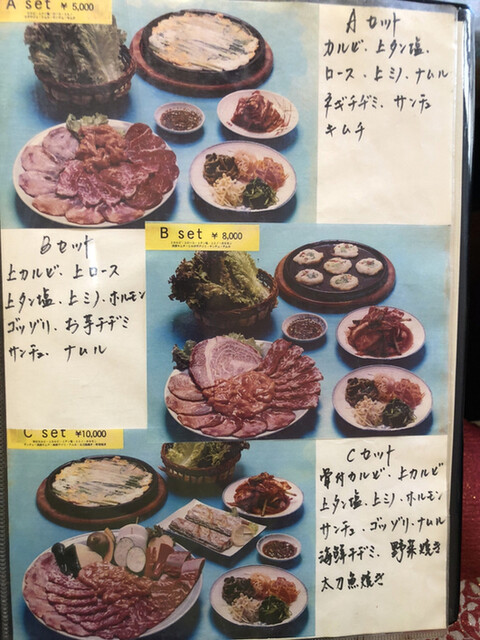 A set ¥5,000
Aセット
カルビ、上タン塩、
ロース、上ミノ、ナムル
ネギチヂミ、サンチュ
キムチ
B set ¥8,000
Bセット
上カルビ、上ロース
上タン塩、上ミノ、ホルモン
ゴッゾリ、お芋チヂミ
サンチュ、ナムル
C set ¥10,000
Cセット
骨付カルビ、上カルビ
上タン塩、上ミノ、ホルモン
サンチュ、ゴッゾリ、ナムル
海鮮チヂミ、野菜焼き
太刀魚焼き